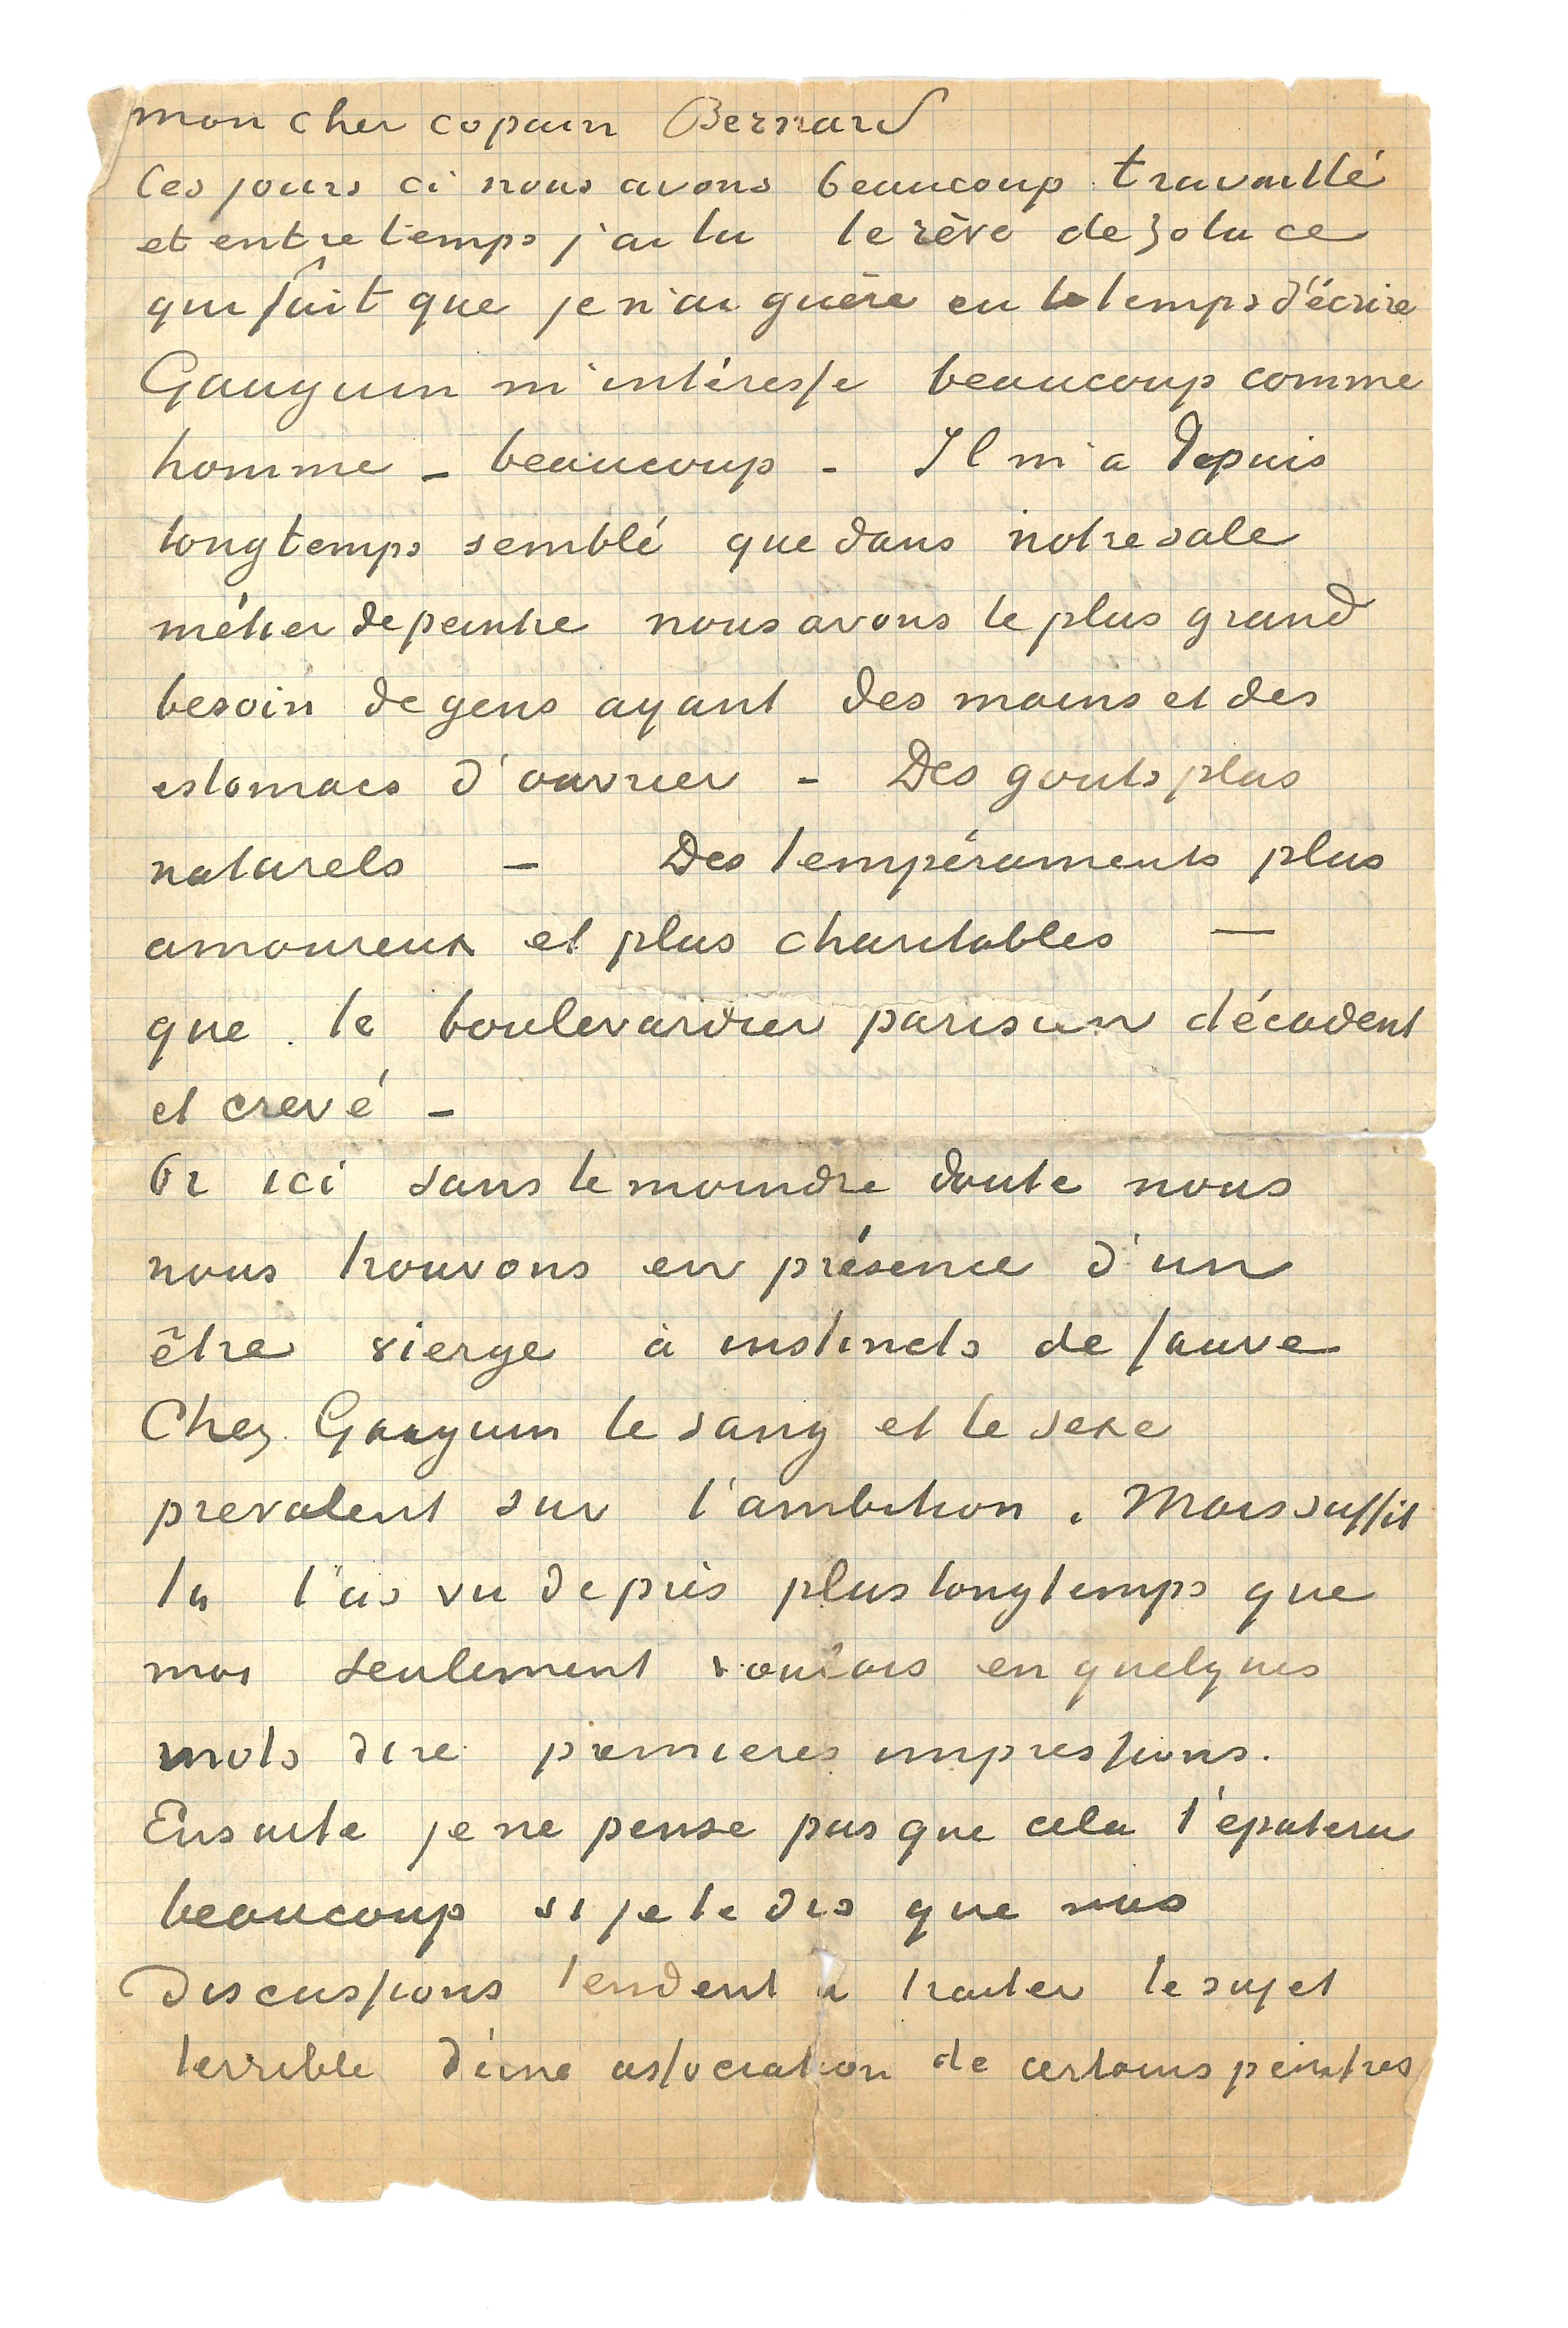 mon cher copain Bernard
Ces jours ci nous avons beaucoup travaillé
et entretemps j'ai lu le rève de Zola ce
qui fait que je n'ai guère eu le temps d'écrire
Gauguin m'intéresse beaucoup comme
homme - beaucoup - Il m'a depuis
longtemps semblé que dans notre sale
métier de peintre nous avons le plus grand
besoin de gens ayant des mains et des
estomacs d'ouvrier - Des gouts plus
naturels - Des tempéraments plus
amoureux et plus charitables —
que le boulevardier parisien décadent
et crevé -
Or ici sans le moindre doute nous
nous trouvons en présence d'un
être vierge à instincts de fauve
Chez Gauguin le sang et le sexe
prevalent sur l'ambition. Mais suffit
tu l'as vu de près plus longtemps que
moi seulement voulais en quelques
mots dire premieres impressions.
Ensuite je ne pense pas que cela t'epatera
beaucoup si je te dis que nos
discussions tendent à traiter le sujet
terrible d'une association de certains peintres